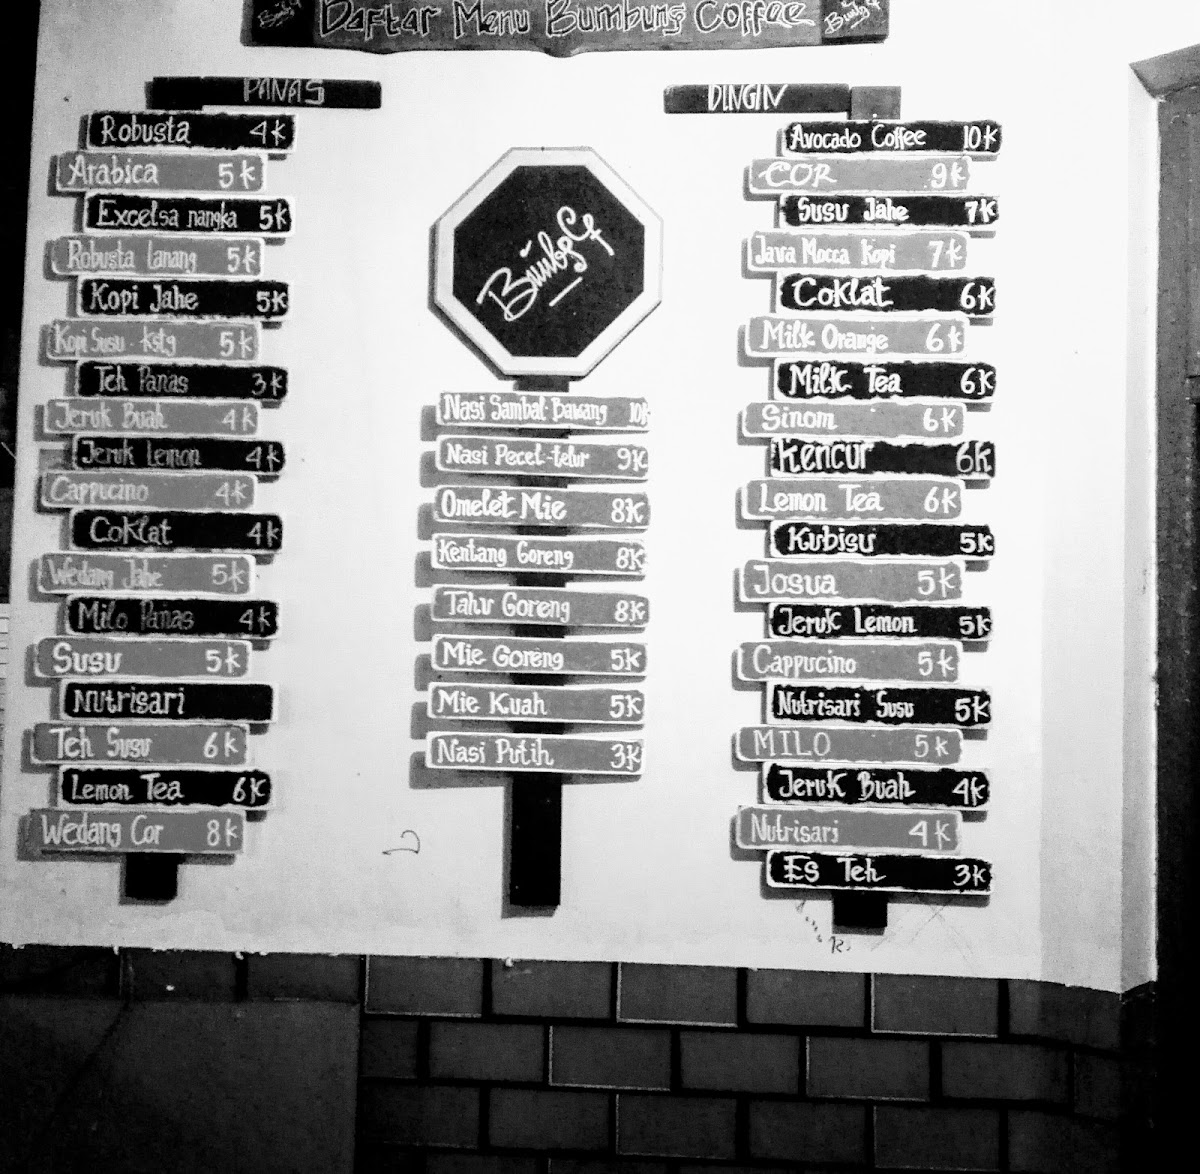 Daftar Menu Bumbung Coffee
PANAS
Robusta 4k
Arabica 5k
Excelsa nangka 5k
Robusta Lanang 5k
Kopi Jahe 5k
Kopi Susu kstg 5k
Teh Panas 3k
Jeruk Buah 4k
Jeruk Lemon 4k
Cappucino 4k
Coklat 4k
Wedang Jahe 5k
Milo Panas 4k
Susu 5k
Nutrisari
Teh Susu 6k
Lemon Tea 6k
Wedang Cor 8k
Nasi Sambal Bawang 10k
Nasi Pecel-telur 9k
Omelet Mie 8k
Kentang Goreng 8k
Tahu Goreng 8k
Mie Goreng 5k
Mie Kuah 5k
Nasi Putih 3k
DINGIN
Avocado Coffee 10k
COR 9k
Susu Jahe 7k
Java Mocca Kopi 7k
Coklat 6k
Milk Orange 6k
Milk Tea 6k
Sinom 6k
Kencur 6k
Lemon Tea 6k
Kubisu 5k
Josua 5k
Jeruk Lemon 5k
Cappucino 5k
Nutrisari Susu 5k
MILO 5k
Jeruk Buah 4k
Nutrisari 4k
Es Teh 3k